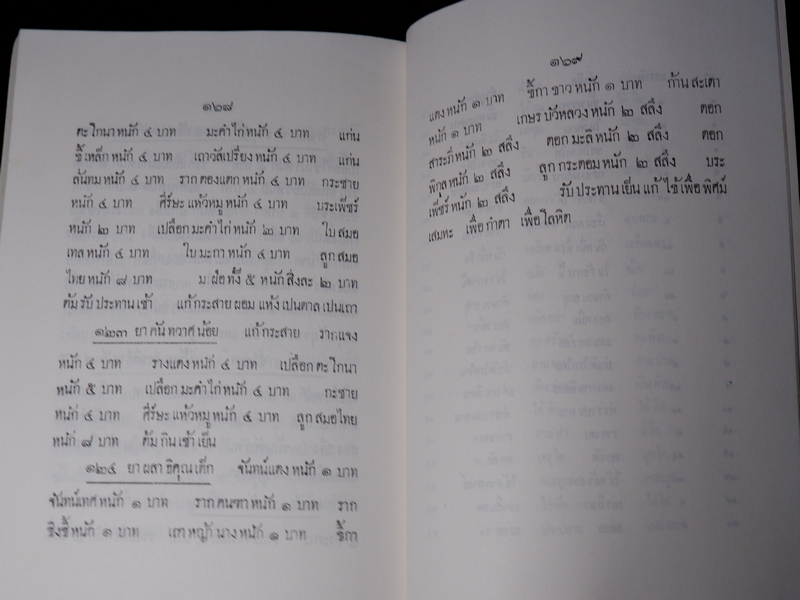 ๑๖๘
ตะไกนาหนัก ๔ บาท มะคำไก่หนัก ๔ บาท แก่น
ขี้เหล็กหนัก ๔ บาท เถาวัลเปรียงหนัก ๔ บาท แก่น
ลันทมหนัก ๔ บาท รากตองแตกหนัก ๔ บาท กระชาย
หนัก ๔ บาท ศีร์ษะแห้วหมูหนัก ๔ บาท ประเพ็ชร์
หนัก ๒ บาท เปลือกมะคำไก่หนัก ๒ บาท ใบสมอ
เทศหนัก ๔ บาท ใบมะกาหนัก ๔ บาท ลูกสมอ
ไทยหนัก ๘ บาท มะผ่อทั้ง ๕ หนักสิ่งละ ๒ บาท
ต้มรับประทานเช้า แก้กระสายผอมแห้งเปนดาลเปนเถา
๑๒๓ ยาคันทวาศน้อย แก้กระสาย รากแจง
หนัก ๔ บาท รางแดงหนัก ๔ บาท เปลือกตะไกนา
หนัก ๕ บาท เปลือกมะคำไก่หนัก ๔ บาท กะชาย
หนัก ๔ บาท ศีร์ษะแห้วหมูหนัก ๔ บาท ลูกสมอไทย
หนัก ๘ บาท ต้มกินเช้าเย็น
๑๒๔ ยาผสาธิคุณเด็ก จันทน์แดงหนัก ๑ บาท
จันทน์เทศหนัก ๑ บาท รากคนฑาหนัก ๑ บาท ราก
ชิงชี้หนัก ๑ บาท เถาหญ้านางหนัก ๑ บาท ขี้กา
๑๖๙
แดงหนัก ๑ บาท ขี้กาขาวหนัก ๑ บาท ก้านสะเดา
หนัก ๑ บาท เกษรบัวหลวงหนัก ๒ สลึง ดอก
สาระภีหนัก ๒ สลึง ดอกมะลิหนัก ๒ สลึง ดอก
พิกุลหนัก ๒ สลึง ลูกกระดอมหนัก ๒ สลึง ประ
เพ็ชร์หนัก ๒ สลึง รับประทานเย็น แก้ไข้เพื่อพิศม์
เสมหะ เพื่อกำเดา เพื่อโลหิต